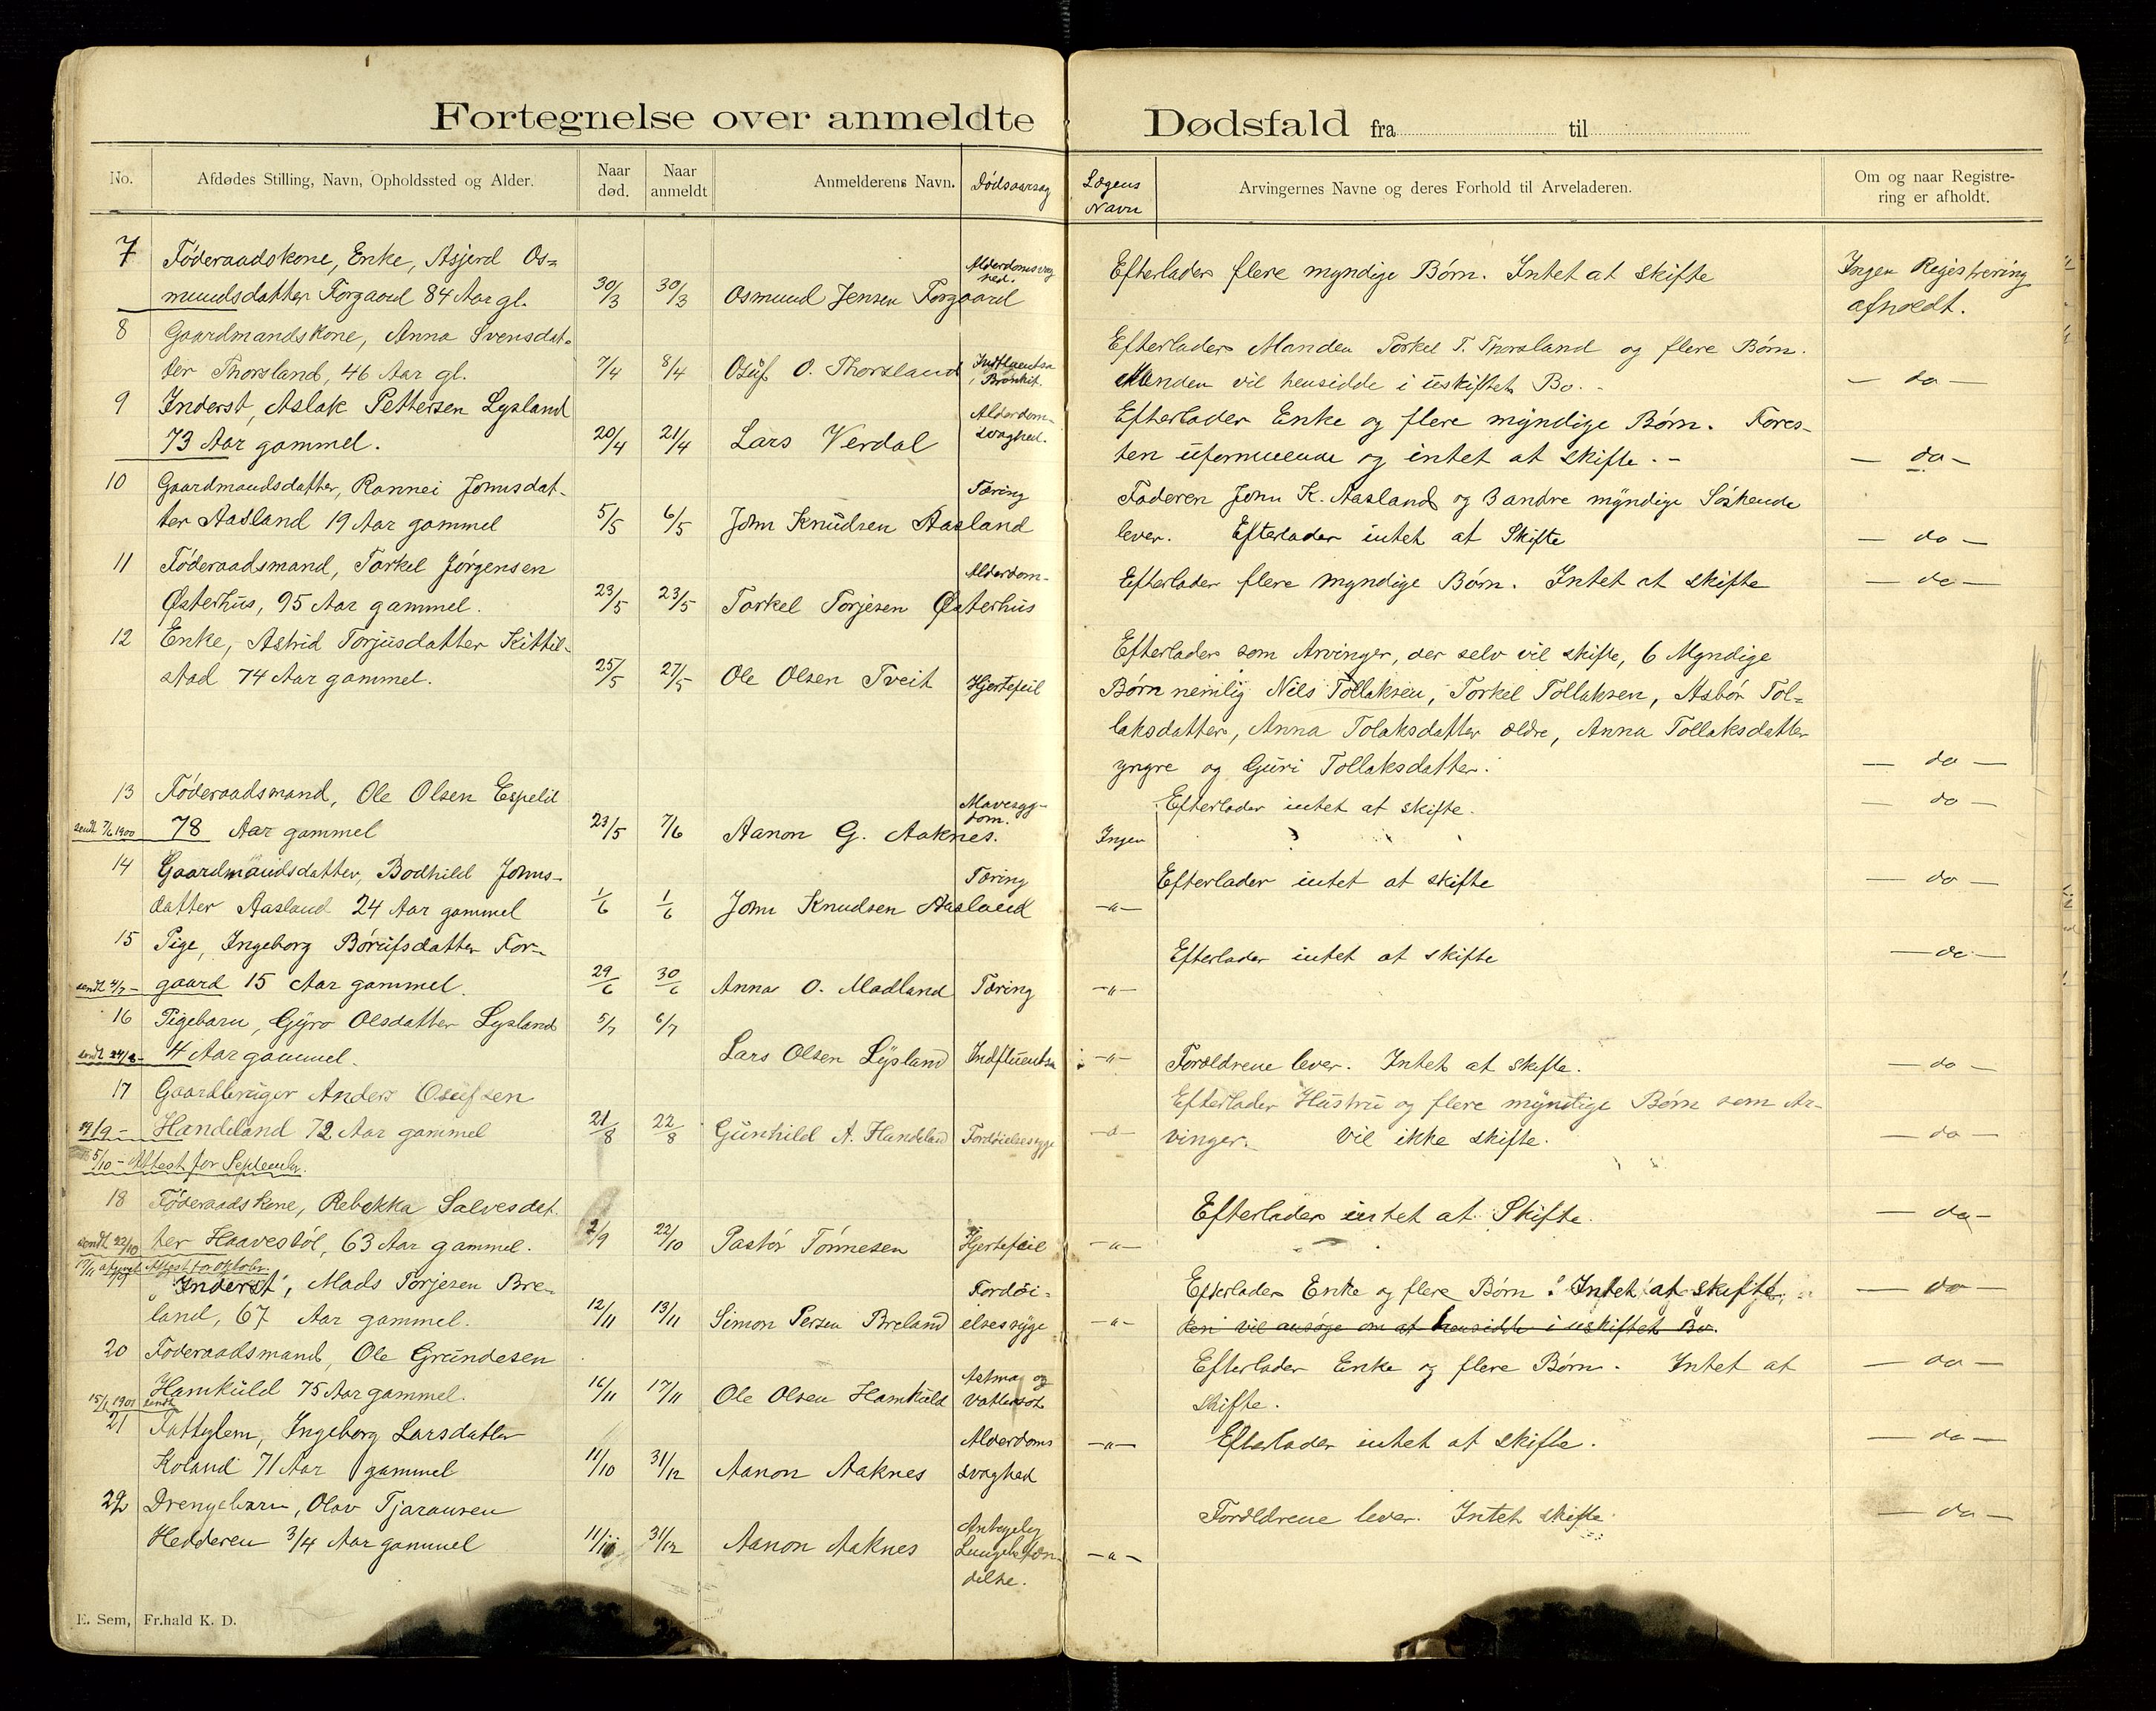 Fortegnelse over anmeldte Dødsfald fra til
No. Afdødes Stilling, Navn, Opholdssted og Alder. Naar død. Naar anmeldt Anmelderens Navn. Dødsaarsag Lægens Navn Arvingernes Navne og deres Forhold til Arveladeren. Om og naar Registrering er afholdt.
7 Føderaadskone, Enke, Asjerd Os=
mundsdatter Forgaard 84 Aar gl. 30/3 30/3 Osmund Jensen Forgaard Alderdomsvag
hed. Efterlader flere myndige Børn. Intet at skifte Ingen Registrering
afholdt.
8 Gaardmandskone, Anna Svensdat-
ter Thorsland, 46 Aar gl. 7/4 8/4 Osuf O. Thorsland Indfluentsa
i Bronkit. Efterlader Manden Torkel T. Thorsland og flere Børn.
Manden vil hensidde i uskiftet Bo. - — do —
9 Inderst, Aslak Pettersen Lysland
73 Aar gammel. 20/4 21/4 Lars Verdal Alderdom-
svaghed. Efterlader Enke og flere myndige Børn. Fores-
ten uformuende og intet at skifte. - — do —
10 Gaardmandsdatter, Rannei Johnsdat-
ter Aasland 19 Aar gammel 5/5 6/5 John Knudsen Aasland Tæring Faderen John K. Aasland og 3 andre myndige Søskende
lever. Efterlader intet at Skifte — do —
11 Føderaadsmand, Torkel Jørgensen
Østerhus, 95 Aar gammel. 23/5 23/5 Torkel Torjesen Østerhus Alderdom- Efterlader flere myndige Børn. Intet at skifte — do —
12 Enke, Astrid Torjusdatter Kittil-
stad 74 Aar gammel. 25/5 27/5 Ole Olsen Tveit Hjertefeil Efterlader som Arvinger, der selv vil skifte, 6 Myndige
Børn nemlig Nils Tollaksen, Torkel Tollaksen, Asbør Tol=
laksdatter, Anna Tolaksdatter ældre, Anna Tollaksdatter
yngre og Guri Tollaksdatter. — do —
13 Føderaadsmand, Ole Olsen Espelid
sendt 7/6 1900 78 Aar gammel 23/5 7/6 Aanon G. Aaknes. Mavesyg-
dom. Ingen Efterlader intet at skifte. — do —
14 Gaardmandsdatter, Bodhild Johns-
datter Aasland 24 Aar gammel 1/6 1/6 John Knudsen Aasland Tæring —"— Efterlader intet at skifte — do —
15 Pige, Ingeborg Børufsdatter For-
sendt 4/7 - gaard 15 Aar gammel. 29/6 30/6 Anna O. Madland Tæring —"— Efterlader intet at skifte — do —
16 Pigebarn, Gyro Olsdatter Lysland 5/7 6/7
sendt 24/8 - 4 Aar gammel. Lars Olsen Lysland Indfluentsa —"— Forældrene lever. Intet at skifte. — do —
17 Gaardbruger Anders Osufsen
Handeland 72 Aar gammel 21/8 22/8 Gunhild A. Handeland Fordøielsessyge —"— Efterlader Hustru og flere myndige Børn som Ar-
vinger. Vil ikke skifte. — do —
5/10 - Attest for September.
18 Føderaadskone, Rebekka Salvesdat.
sendt 22/10 ter Haavestøl, 63 Aar gammel. 2/9 22/10 Pastor Tønnesen Hjertefeil —"— Efterlader intet at Skifte. — do —
Attest for Oktober.
Inderst, Mads Torjesen Bre-
land, 67 Aar gammel. 12/11 13/11 Simon Persen Breland Fordøi-
elsessyge —"— Efterlader Enke og flere Børn. Intet at skifte, — do —
ken vil ansøge om at hensidde i uskiftet Bo.
20 Føderaadsmand, Ole Grundesen
Hamkuld 75 Aar gammel. 16/11 17/11 Ole Olsen Hamkuld Astma og
Vattersot Efterlader Enke og flere Børn. Intet at
skifte. — do —
15/1 1901 sendt
21 Fattiglem, Ingeborg Larsdatter
Koland 71 Aar gammel 11/10 31/12 Aanon Aaknes Alderdoms
svaghed —"— Efterlader intet at skifte. — do —
22 Drengebarn, Olav Tjaransen
Hedderen 3/4 Aar gammel 11/11 31/12 Aanon Aaknes Lungebetæn-
delse. —"— Forældrene lever. Intet skifte — do —
E. Sem, Fr.hald K. D.